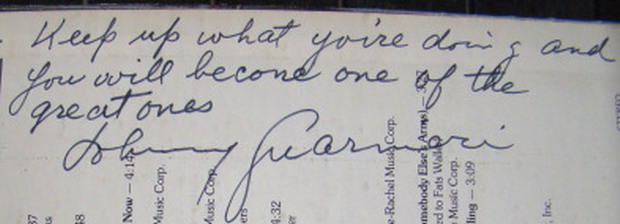 Keep up what you're doing and
you will become one of the
great ones
Johnny Guarnari
37
48
Now — 4:14
Music Corp.
Music Corp.
4:32
e-Rachel Music Corp.
omebody Else's Arms) — 3:22
ed to Fats Walle
Music Corp.
ling — 3:09
Inc.